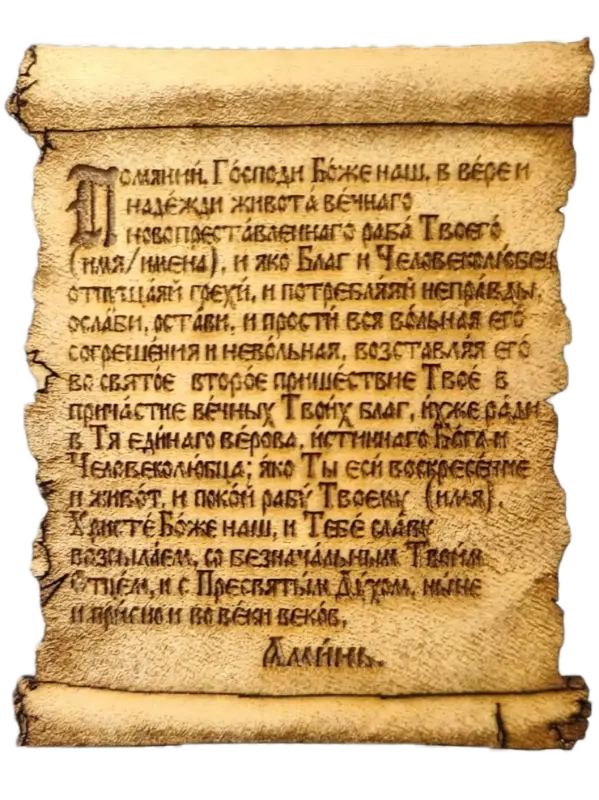 Помяний, Го́споди Бо́же наш, в ве́ре и
наде́жди живота́ ве́чнаго
новопреста́вленнаго раба́ Твоего́
(имя/имена), и яко Благ и Человеколю́бец,
отпуща́яй грехи́, и потребля́яй непра́вды,
осла́би, оста́ви, и прости́ вся во́льная его́
согреше́ния и нево́льная, возставля́я его́
во свято́е второ́е прише́ствие Твое́ в
прича́стие ве́чных Твои́х благ, и́хже ра́ди
в Тя еди́наго ве́рова, и́стиннаго Бо́га и
Человеколю́бца; я́ко Ты еси́ воскресе́ние
и живо́т, и поко́й рабу́ Твоему́ (имя),
Христе́ Бо́же наш, и Тебе́ сла́ву
возсыла́ем, со безнача́льным Твои́м
Отце́м, и с Пресвяты́м Ду́хом, ны́не
и при́сно и во ве́ки веко́в,
Ами́нь.